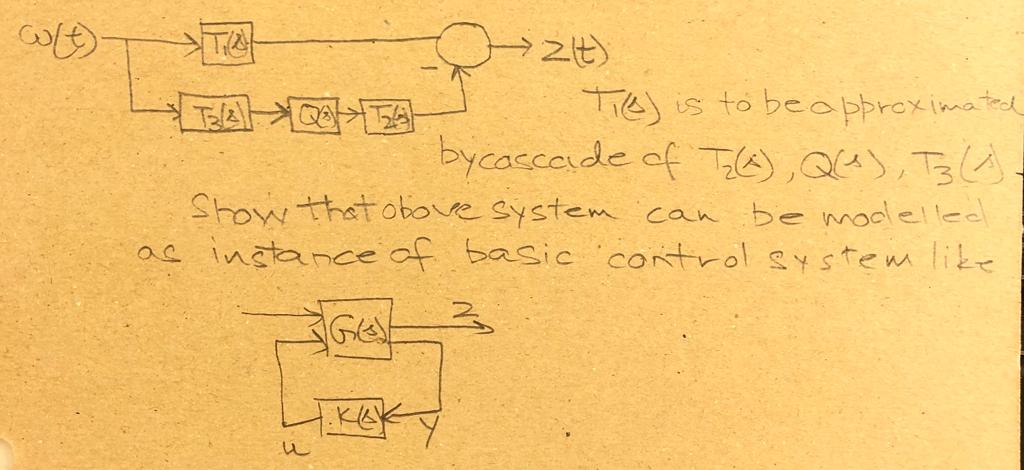 ω(t) T₁(s) z(t)
−
T₃(s) Q(s) T₂(s)
T₁(s) is to be approximated
by cascade of T₂(s), Q(s), T₃(s)
Show that above system can be modelled
as instance of basic control system like
G(s) z
K(s)
u y